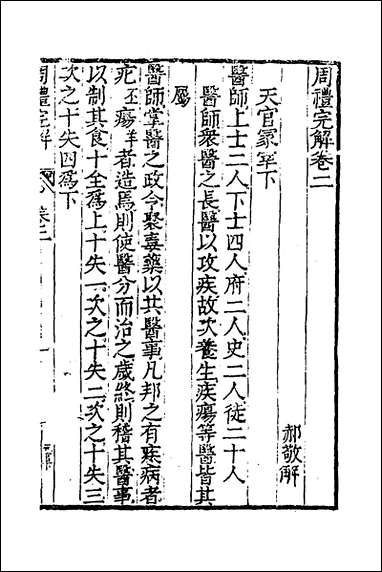 周禮完解卷二
郝敬解
天官冢宰下
醫師上士二人下士四人府二人史二人徒二十人
醫師衆醫之長醫以攻疾故次養生疾瘍等醫皆其
屬
醫師掌醫之政令聚毒藥以共醫事凡邦之有疾病者
疕丕瘍羊者造焉則使醫分而治之歲終則稽其醫事
以制其食十全爲上十失一次之十失二次之十失三
次之十失四爲下
周禮完解 卷二